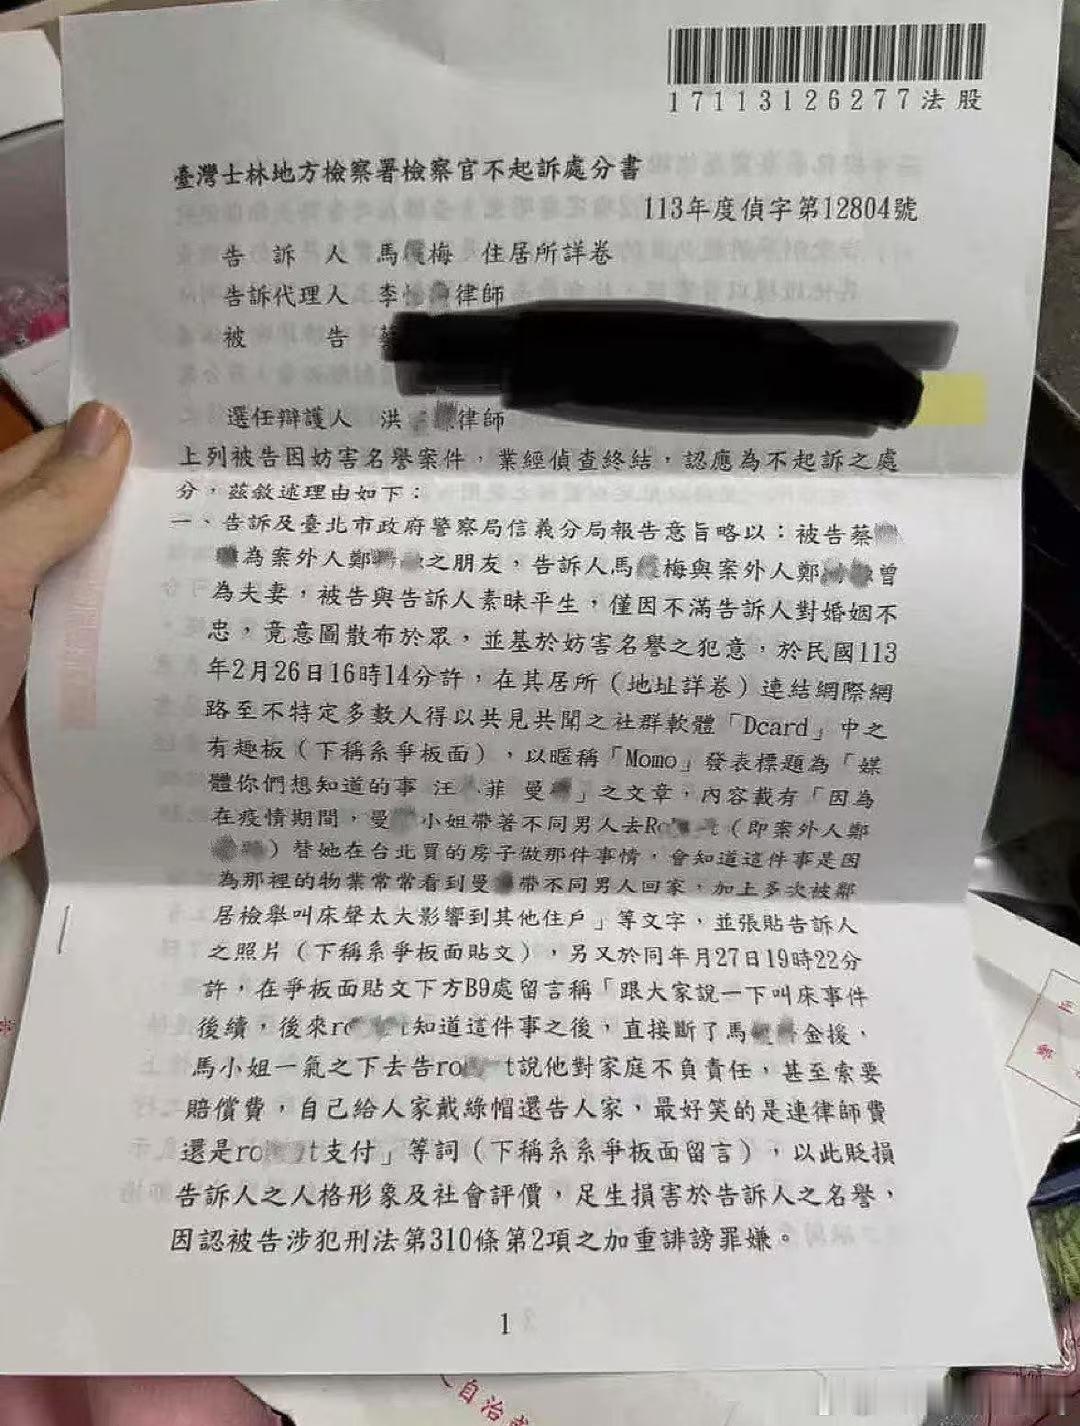 17113126277法股
臺灣士林地方檢察署檢察官不起訴處分書
113年度偵字第12804號
告訴人 馬 梅 住居所詳卷
告訴代理人 李 律師
被告 蔡
選任辯護人 洪 律師
上列被告因妨害名譽案件，業經偵查終結，認應為不起訴之處
分，茲敘述理由如下：
一、告訴及臺北市政府警察局信義分局報告意旨略以：被告蔡
為案外人鄭 之朋友，告訴人馬 梅與案外人鄭 曾
為夫妻，被告與告訴人素昧平生，僅因不滿告訴人對婚姻不
忠，竟意圖散布於眾，並基於妨害名譽之犯意，於民國113
年2月26日16時14分許，在其居所（地址詳卷）連結網際網
路至不特定多數人得以共見共聞之社群軟體「Dcard」中之
有趣板（下稱系爭板面），以暱稱「Momo」發表標題為「媒
體你們想知道的事 汪 菲 曼 」之文章，內容載有「因為
在疫情期間，曼 小姐帶著不同男人去Ro t（即案外人鄭
）替她在台北買的房子做那件事情，會知道這件事是因
為那裡的物業常常看到曼 帶不同男人回家，加上多次被鄰
居檢舉叫床聲太大影響到其他住戶」等文字，並張貼告訴人
之照片（下稱系爭板面貼文），另又於同年月27日19時22分
許，在爭板面貼文下方B9處留言稱「跟大家說一下叫床事件
後續，後來ro t知道這件事之後，直接斷了馬 金援，
馬小姐一氣之下去告ro t說他對家庭不負責任，甚至索要
賠償費，自己給人家戴綠帽還告人家，最好笑的是連律師費
還是ro t支付」等詞（下稱系系爭板面留言），以此貶損
告訴人之人格形象及社會評價，足生損害於告訴人之名譽，
因認被告涉犯刑法第310條第2項之加重誹謗罪嫌。
1
人自治